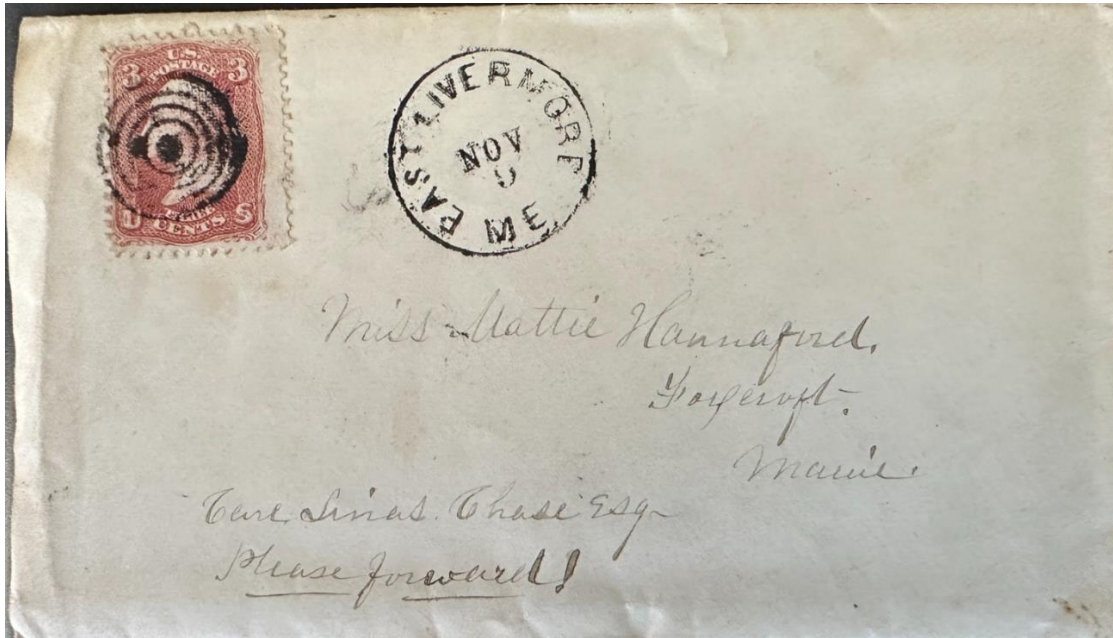 3 3
U.S.
POSTAGE
THREE
U S
CENTS
EAST LIVERMORE
NOV
9
ME
Miss Mattie Hannaford.
Foxcroft.
Maine.
Care Chase Esq
Please forward!